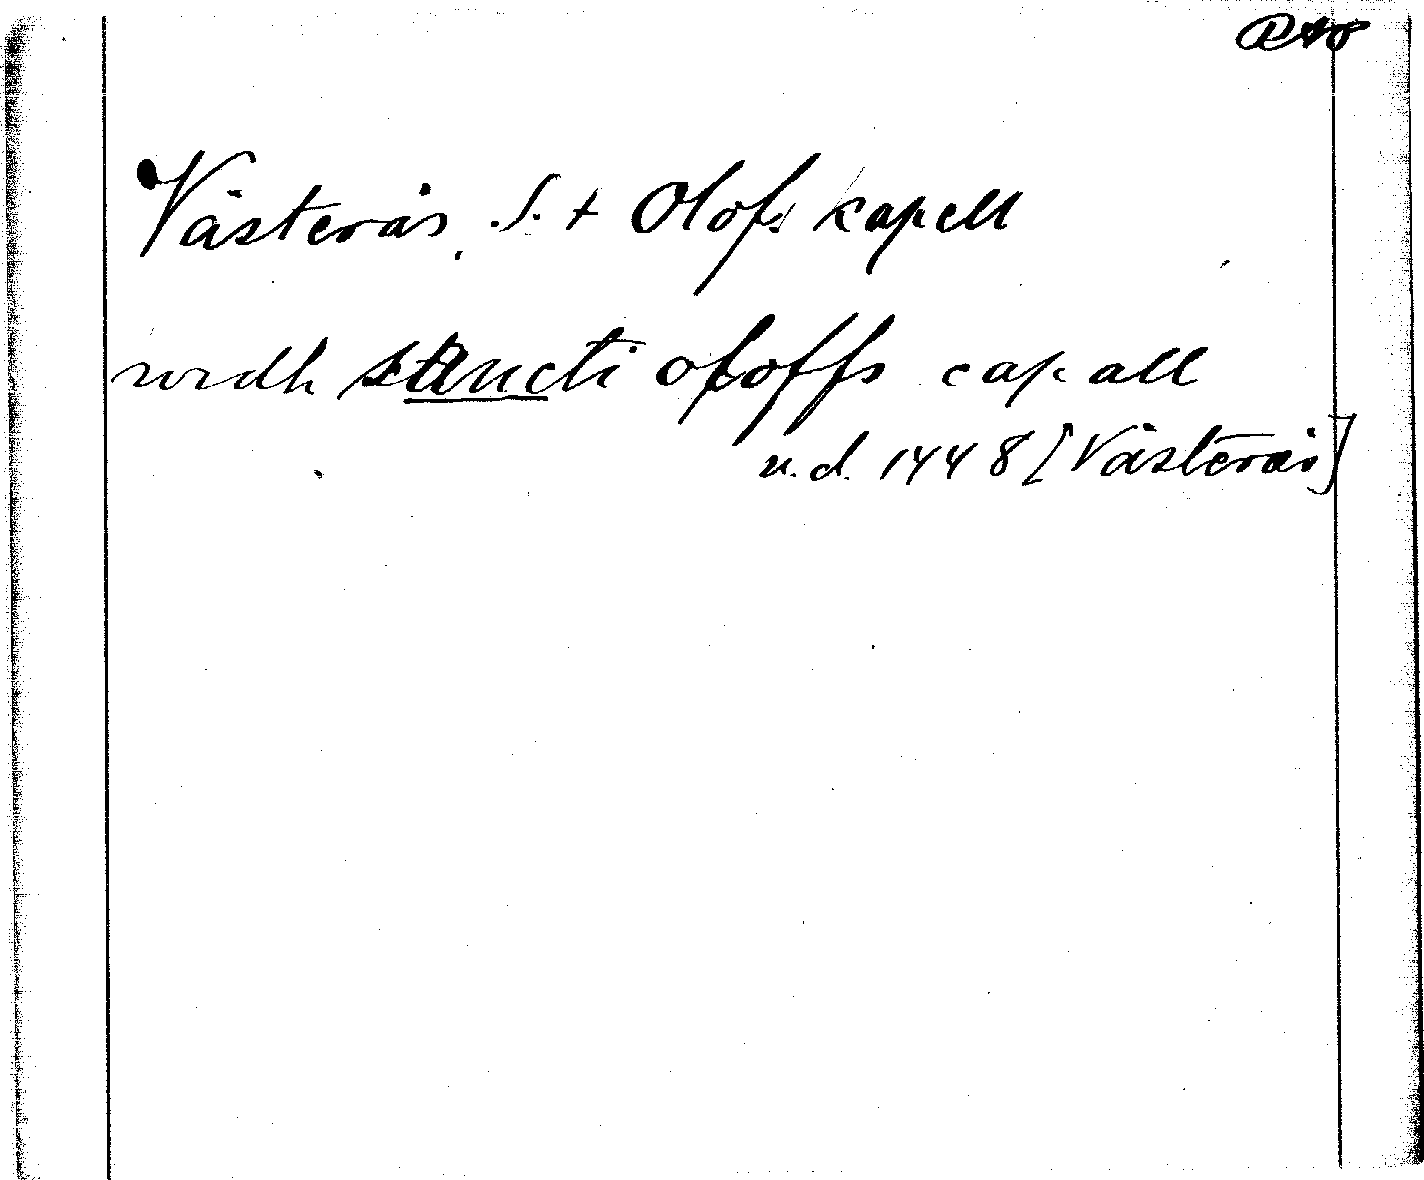 RAP
Västerås. S:t Olofs kapell
widh sancti oloffs capall
u.d. 1448 [Västerås]